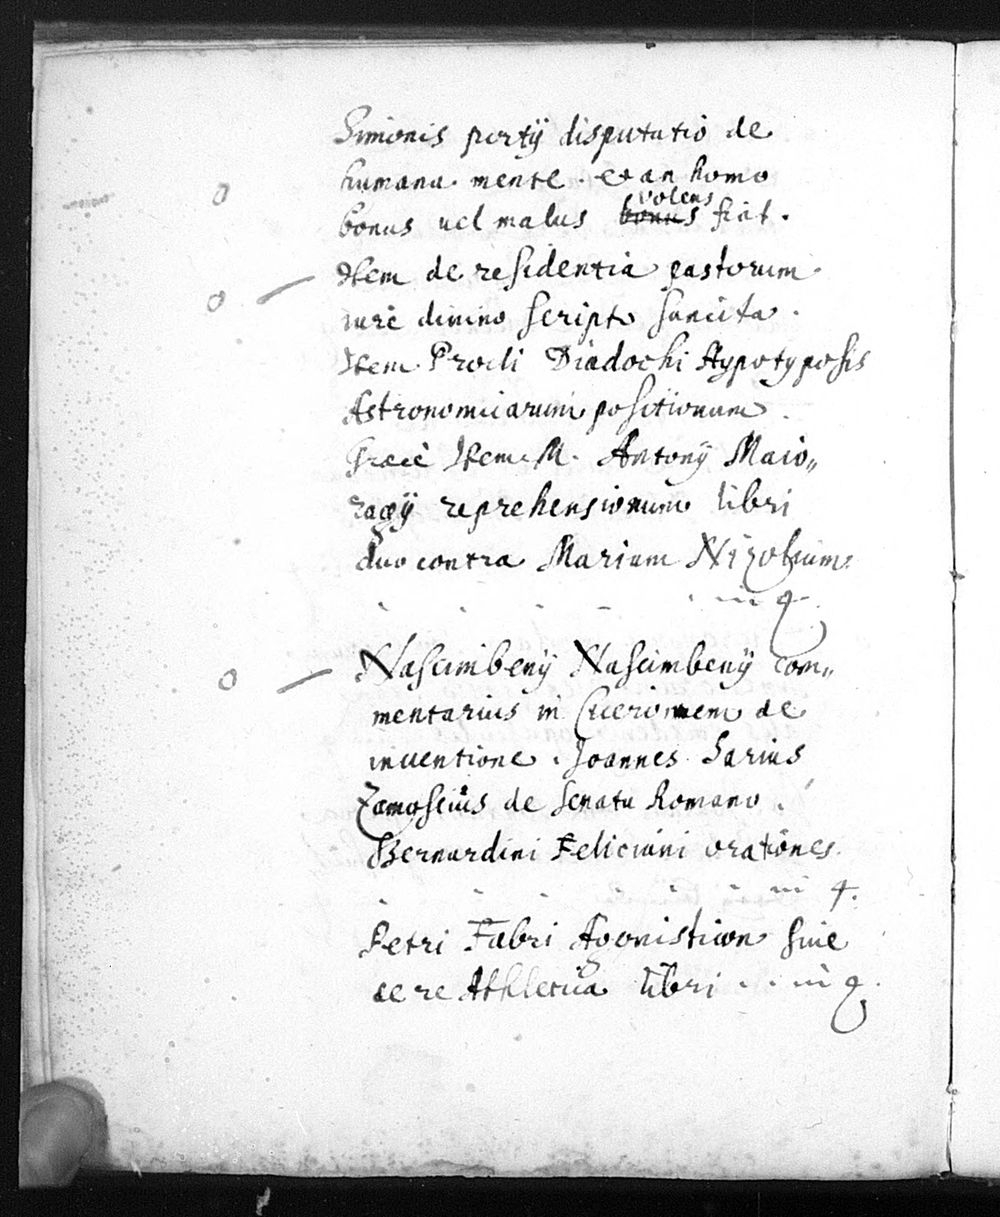 Simonis portij disputatio de
humana mente. et an homo
volens
bonus uel malus bonus fiat.
Item de residentia pastorum
iure diuino scripto sancita.
Item Procli Diadochi Hypotyposis
Astronomicarum positionum.
Graecè Item M. Antonij Maio„
ragij reprehensionum libri
duo contra Marium Nizolium.
in 4.
Nascimbenij Nascimbenij com„
mentarius in Ciceronem de
inuentione. Joannes Sarius
Zamoscius de Senatu Romano.
Bernardini Feliciani orationes.
in 4.
Petri Fabri Agonisticon siue
de re Athletica libri .. in 4.